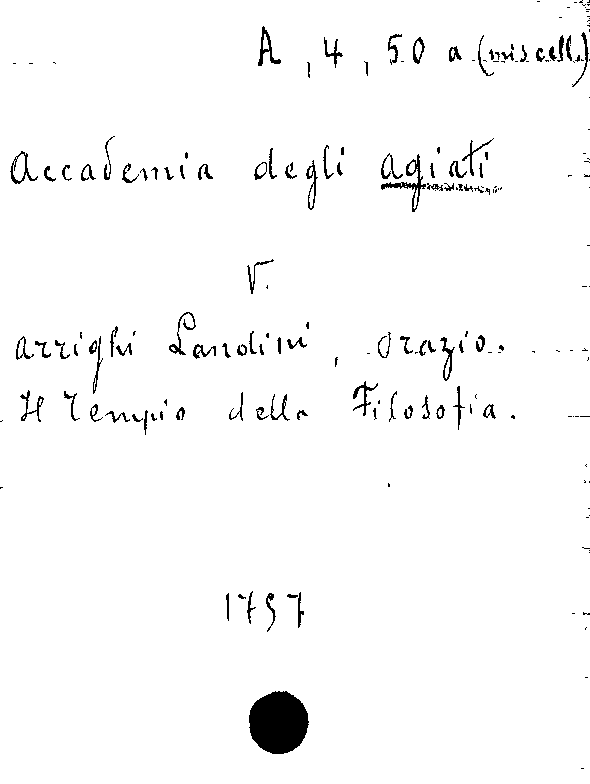 A, 4, 50 a (miscell.)
Accademia degli agiati
V.
Arrighi Landini, Orazio.
Il Tempio della Filosofia.
1757